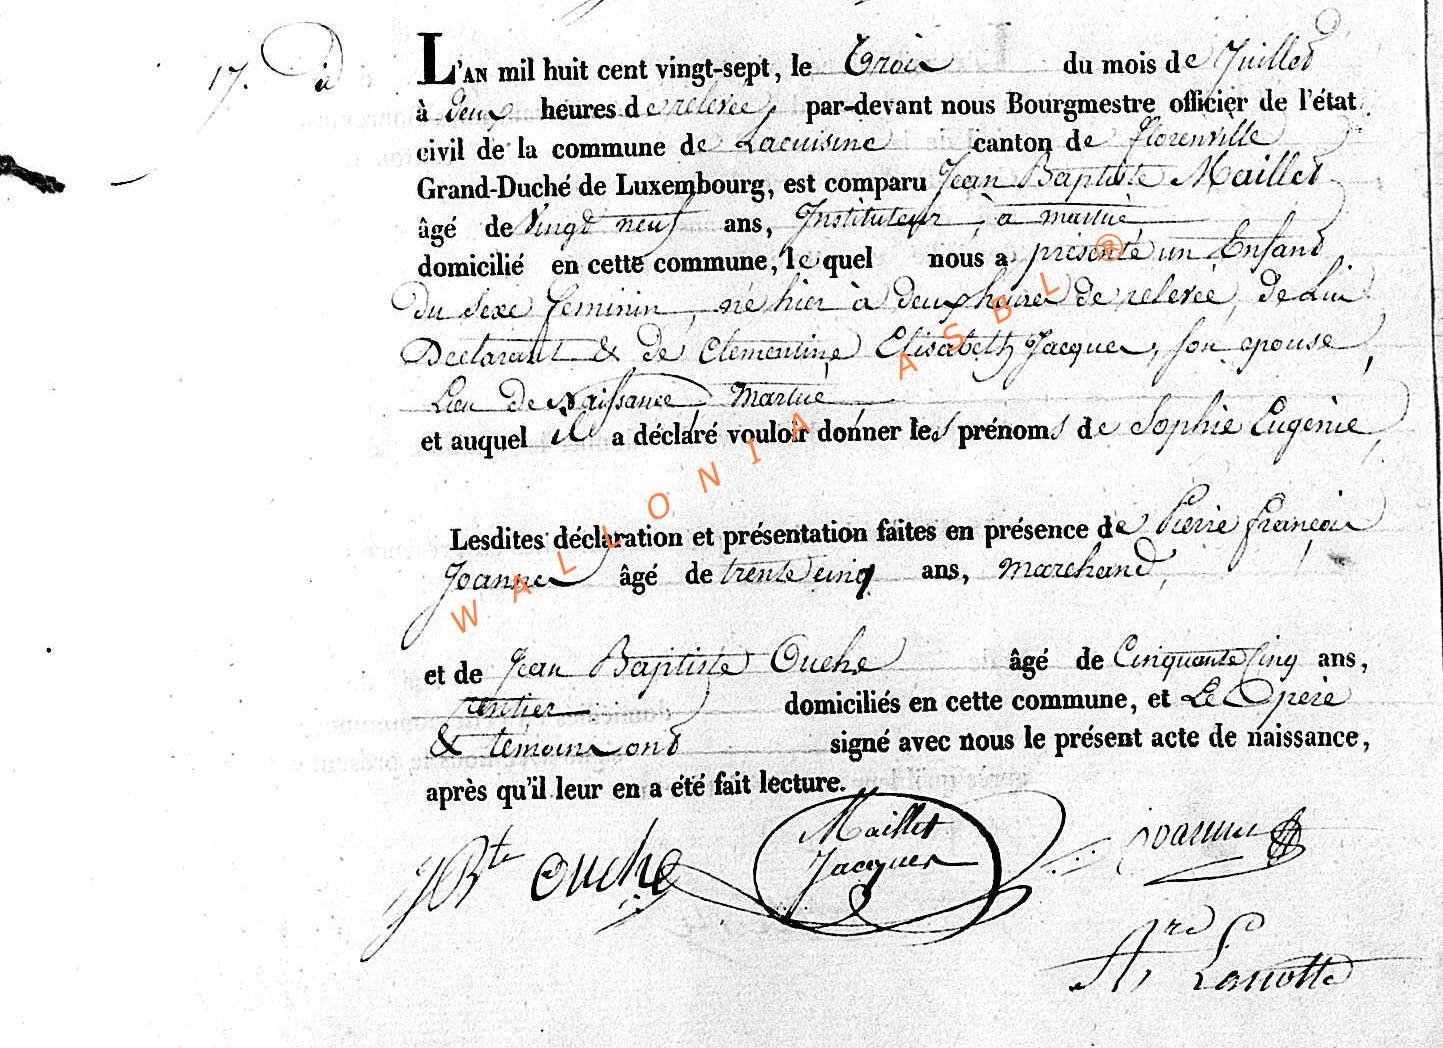 17. d
L'AN mil huit cent vingt-sept, le Trois du mois de Juillet
à deux heures de relevée, par-devant nous Bourgmestre officier de l'état
civil de la commune de Lacuisine canton de florenville
Grand-Duché de Luxembourg, est comparu Jean Baptiste Maillet
âgé de Vingt neuf ans, Instituteur, à martué
domicilié en cette commune, lequel nous a présenté un Enfant
du Sexe feminin, né hier à deux heures de relevée, de Lui
Déclarant & de Clementine Elisabeth Jacques, son epouse,
Lieu de Naissance, Martué
et auquel il a déclaré vouloir donner les prénoms de Sophie Eugénie,
Lesdites déclaration et présentation faites en présence de Pierre françois
Joannes âgé de trente cinq ans, marchand,
et de Jean Baptiste Ouche âgé de Cinquante Cinq ans,
rentier domiciliés en cette commune, et Le Père
& témoins ont signé avec nous le présent acte de naissance,
après qu'il leur en a été fait lecture.
JBte Ouche Maillet Joannes
Jacques
Ard Lanotte
WALLONIA ASBL ®